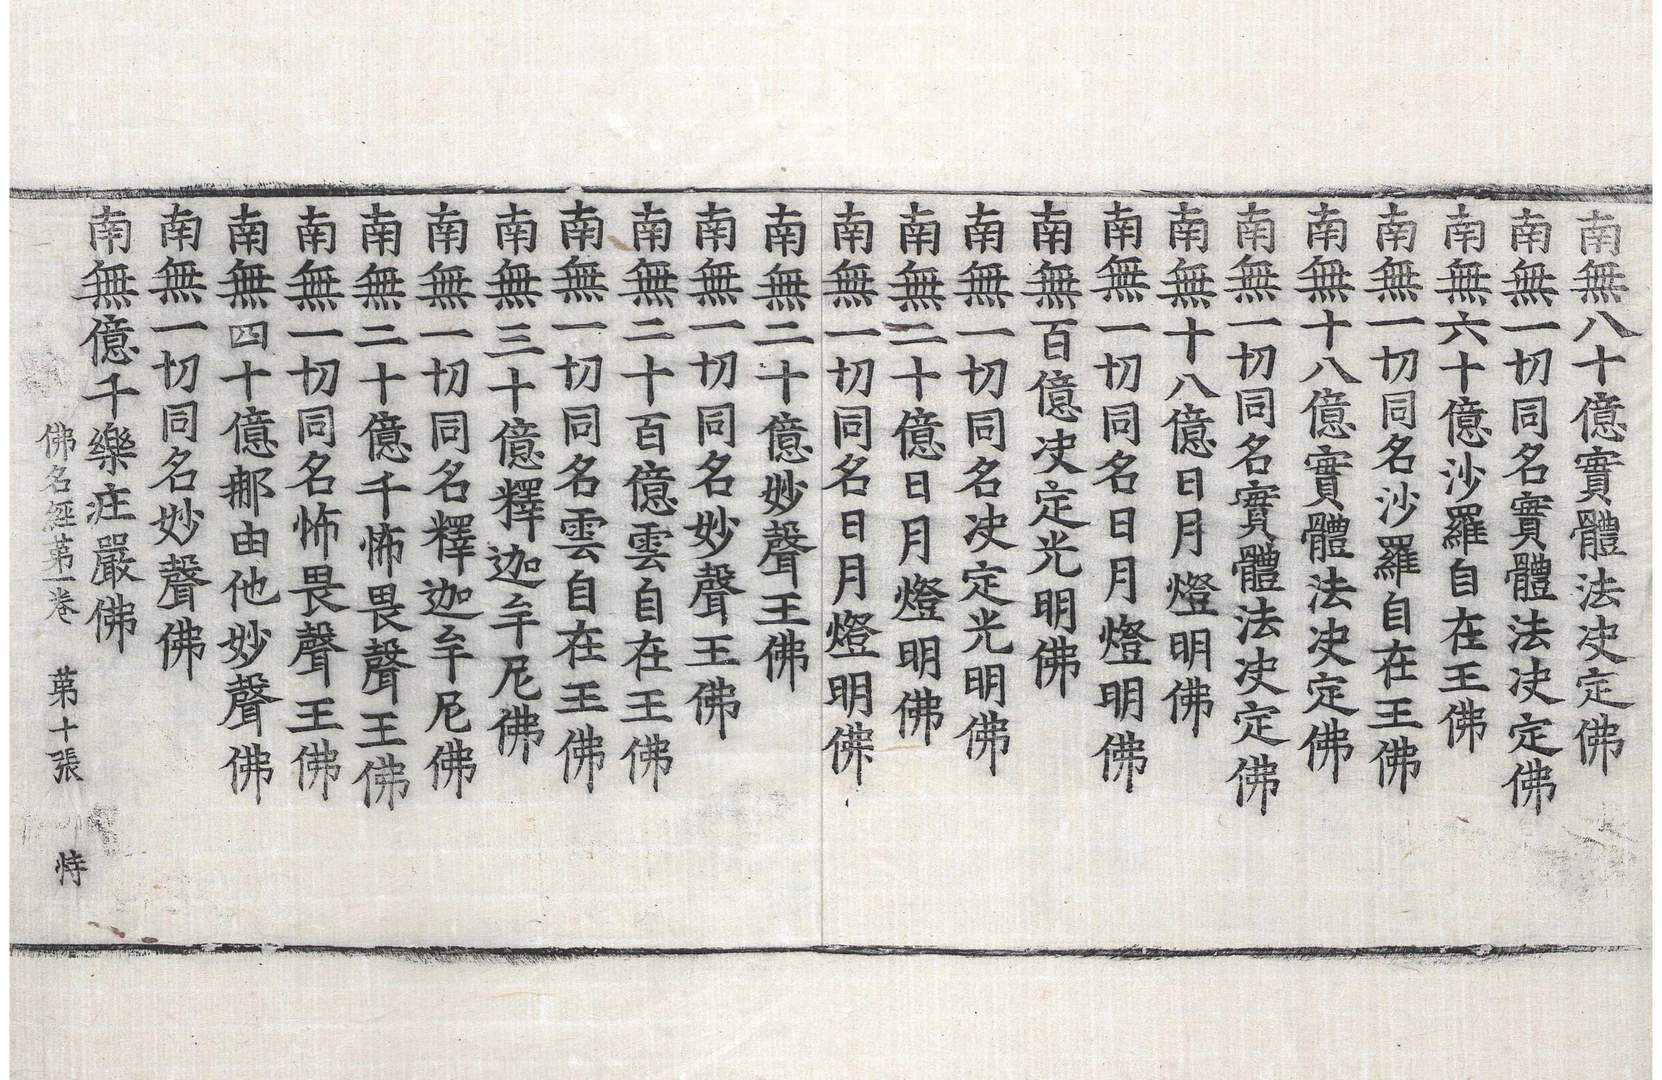 南無八十億實體法决定佛
南無一切同名實體法决定佛
南無六十億沙羅自在王佛
南無一切同名沙羅自在王佛
南無十八億實體法决定佛
南無一切同名實體法决定佛
南無十八億日月燈明佛
南無一切同名日月燈明佛
南無百億决定光明佛
南無一切同名决定光明佛
南無二十億日月燈明佛
南無一切同名日月燈明佛
南無二十億妙聲王佛
南無一切同名妙聲王佛
南無二十百億雲自在王佛
南無一切同名雲自在王佛
南無三十億釋迦牟尼佛
南無一切同名釋迦牟尼佛
南無二十億千怖畏聲王佛
南無一切同名怖畏聲王佛
南無四十億那由他妙聲佛
南無一切同名妙聲佛
南無億千樂庄嚴佛
佛名經苐一卷 苐十張 恃